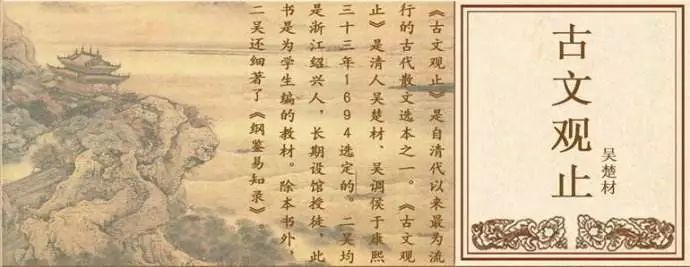 《古文观止》是自清代以来最为流
行的古代散文选本之一。《古文观
止》是清人吴楚材、吴调侯于康熙
三十三年1694选定的。二吴均
是浙江绍兴人，长期设馆授徒，此
书是为学生编的教材。除本书外，
二吴还细著了《纲鉴易知录》。
古文观止
吴楚材